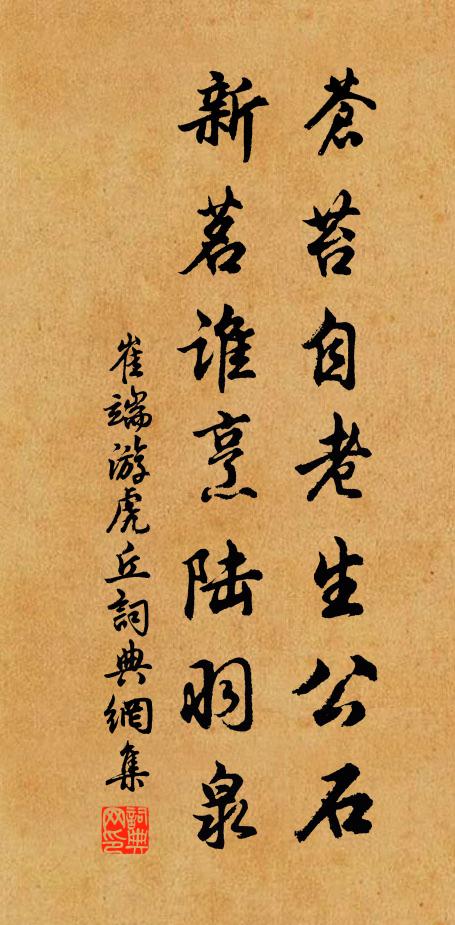 蒼苔自老生公石
新茗谁烹陆羽泉
崔端游虎丘詞典網集
詞典網印